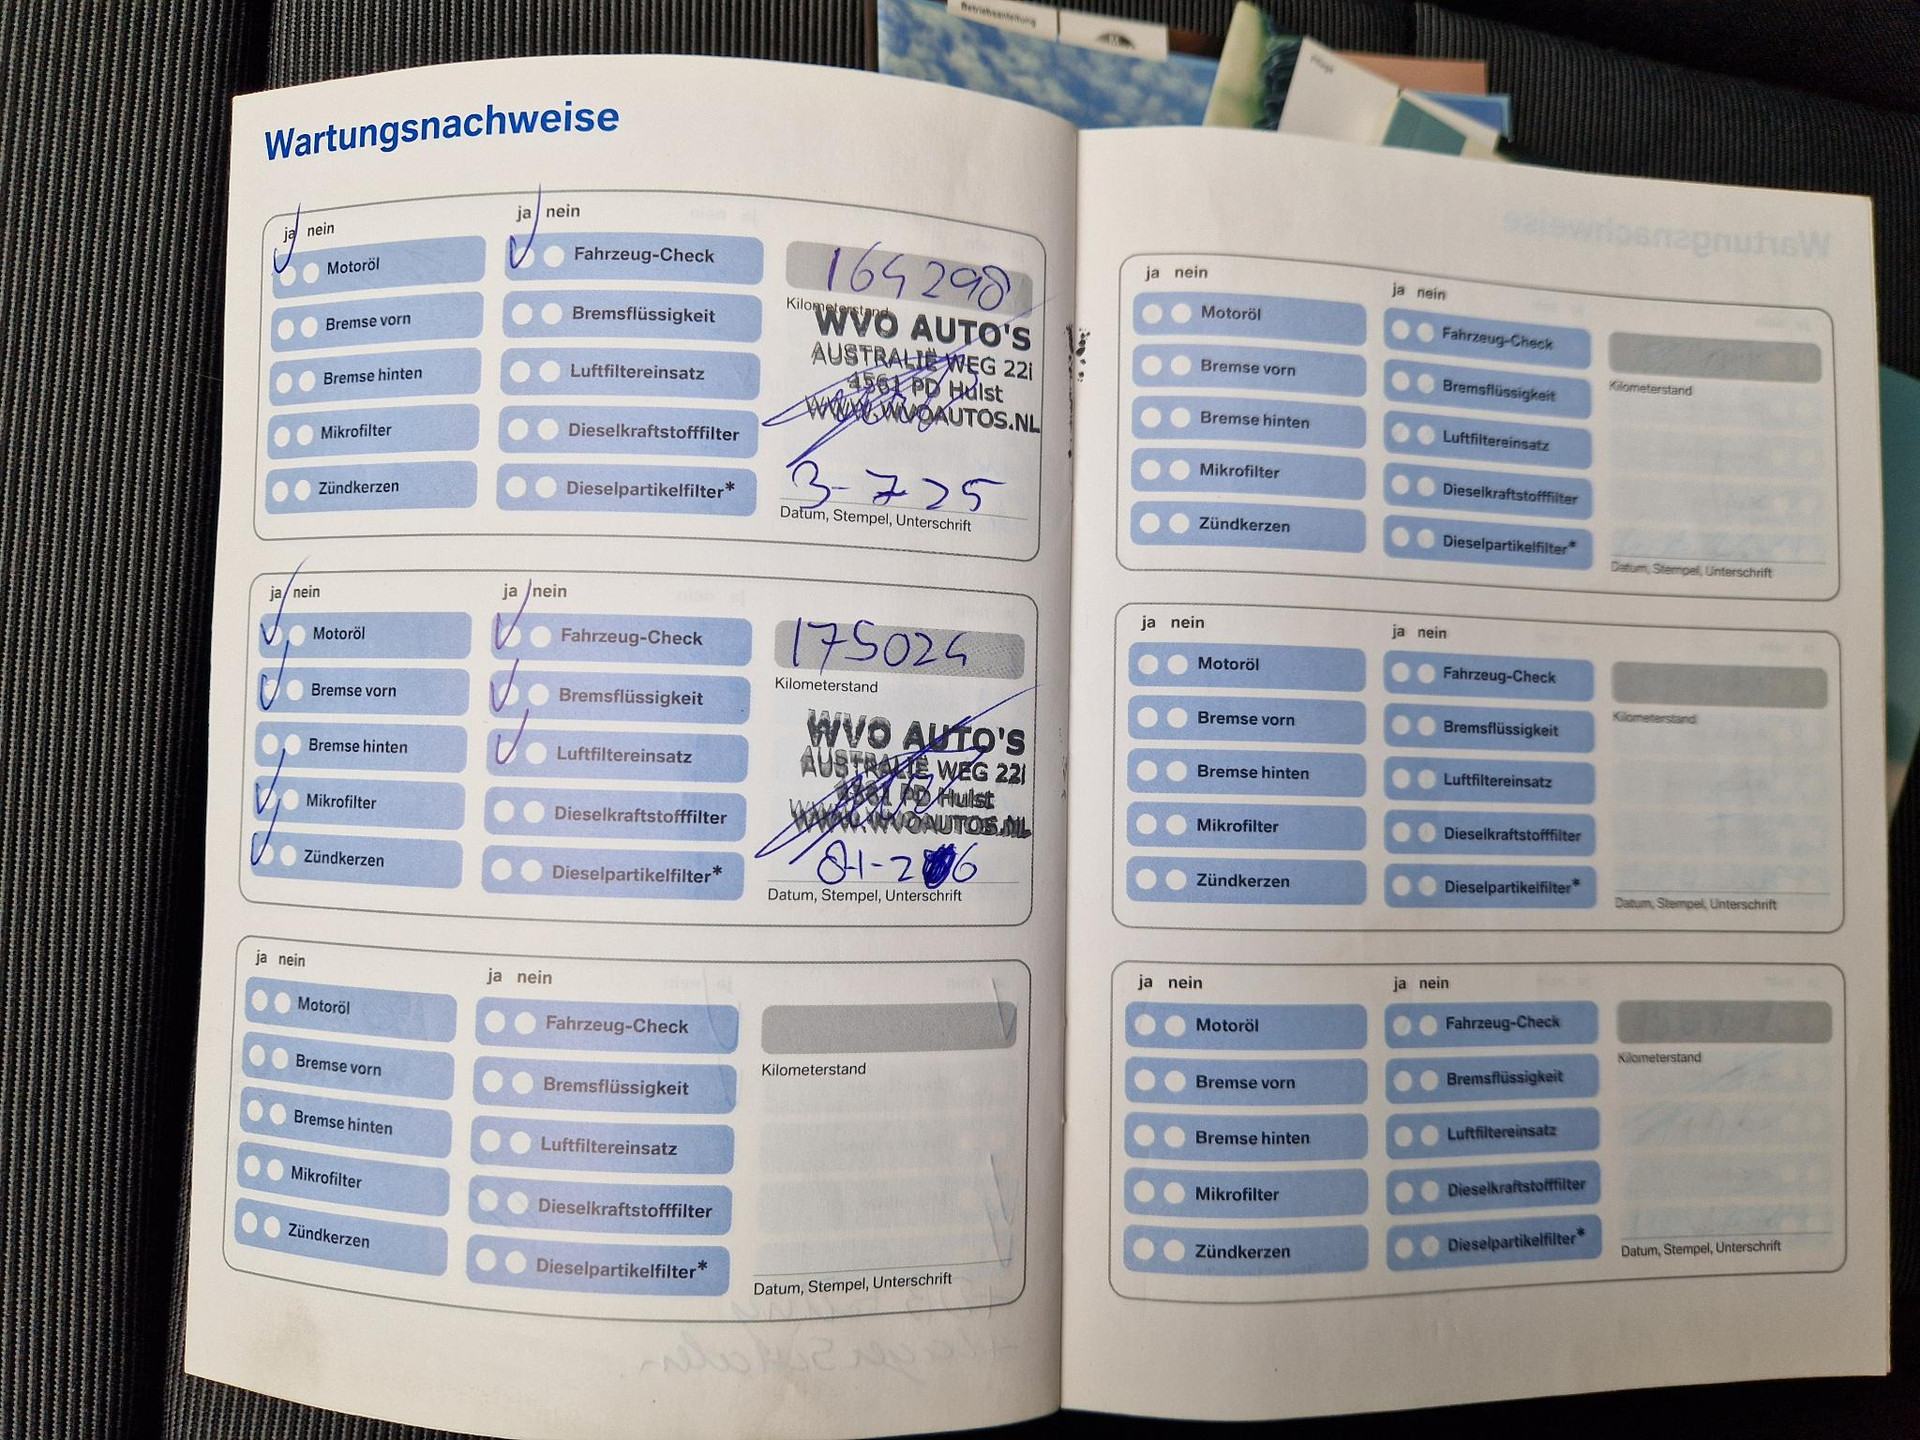 Betriebsanleitung
Wartungsnachweise
ja nein
Motoröl
Bremse vorn
Bremse hinten
Mikrofilter
Zündkerzen
ja nein
Fahrzeug-Check
Bremsflüssigkeit
Luftfiltereinsatz
Dieselkraftstofffilter
Dieselpartikelfilter*
164298
Kilometerstand
WVO AUTO'S
AUSTRALIË WEG 22i
4561 PD Hulst
WWW.WVOAUTOS.NL
3-7 25
Datum, Stempel, Unterschrift
ja nein
Motoröl
Bremse vorn
Bremse hinten
Mikrofilter
Zündkerzen
ja nein
Fahrzeug-Check
Bremsflüssigkeit
Luftfiltereinsatz
Dieselkraftstofffilter
Dieselpartikelfilter*
175024
Kilometerstand
WVO AUTO'S
AUSTRALIË WEG 22i
4561 PD Hulst
WWW.WVOAUTOS.NL
8-1-26
Datum, Stempel, Unterschrift
ja nein
Motoröl
Bremse vorn
Bremse hinten
Mikrofilter
Zündkerzen
ja nein
Fahrzeug-Check
Bremsflüssigkeit
Luftfiltereinsatz
Dieselkraftstofffilter
Dieselpartikelfilter*
Kilometerstand
Datum, Stempel, Unterschrift
ja nein
Motoröl
Bremse vorn
Bremse hinten
Mikrofilter
Zündkerzen
ja nein
Fahrzeug-Check
Bremsflüssigkeit
Luftfiltereinsatz
Dieselkraftstofffilter
Dieselpartikelfilter*
Kilometerstand
Datum, Stempel, Unterschrift
ja nein
Motoröl
Bremse vorn
Bremse hinten
Mikrofilter
Zündkerzen
ja nein
Fahrzeug-Check
Bremsflüssigkeit
Luftfiltereinsatz
Dieselkraftstofffilter
Dieselpartikelfilter*
Kilometerstand
Datum, Stempel, Unterschrift
ja nein
Motoröl
Bremse vorn
Bremse hinten
Mikrofilter
Zündkerzen
ja nein
Fahrzeug-Check
Bremsflüssigkeit
Luftfiltereinsatz
Dieselkraftstofffilter
Dieselpartikelfilter*
Kilometerstand
Datum, Stempel, Unterschrift